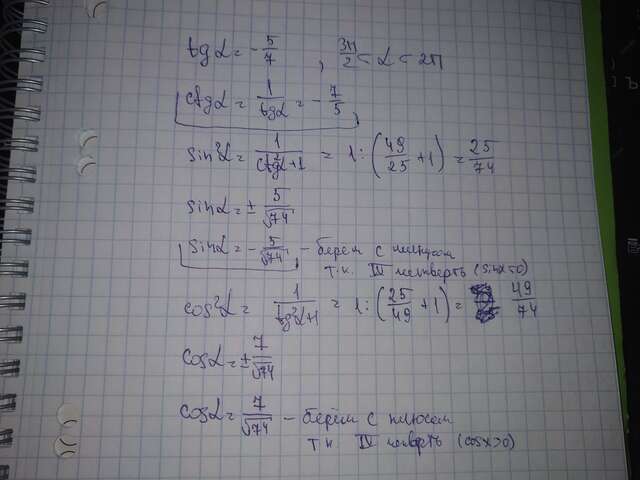 tg α = - 5/7 , 3π/2 < α < 2π
ctg α = 1/tg α = - 7/5
sin²α = 1/(ctg²α+1) = 1 : (49/25 + 1) = 25/74
sin α = ± 5/√74
sin α = - 5/√74 - берём с минусом
т.к. IV четверть (sinx<0)
cos²α = 1/(tg²α+1) = 1 : (25/49 + 1) = 49/74
cos α = ± 7/√74
cos α = 7/√74 - берём с плюсом
т.к. IV четверть (cosx>0)